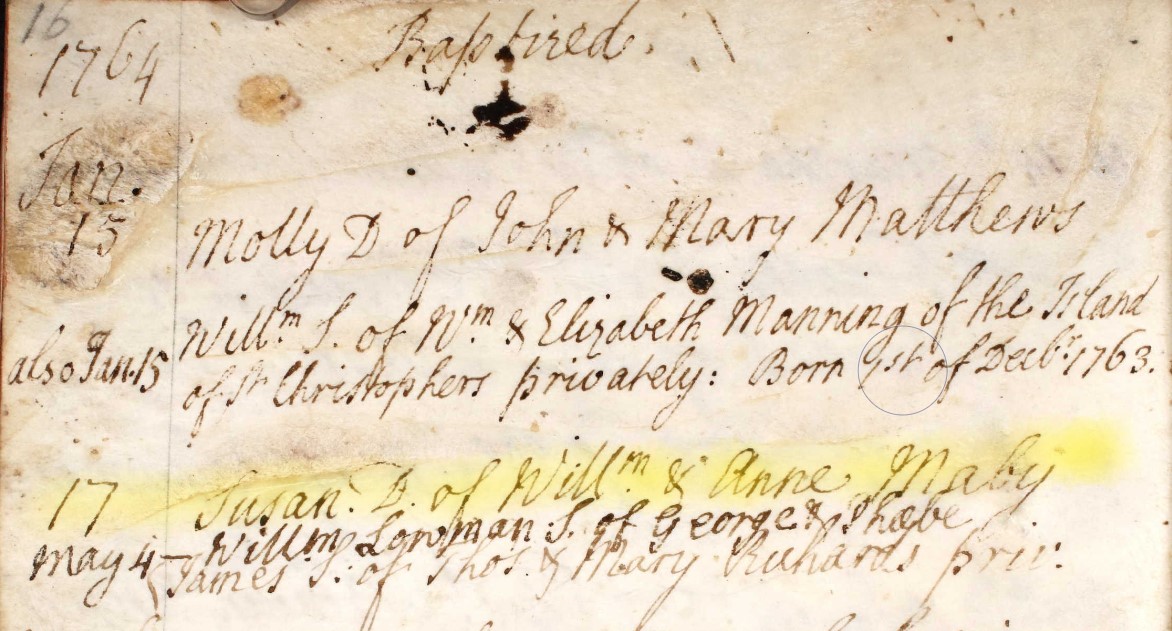 16
1764 Baptized.
Jan.
15 Molly D of John & Mary Matthews
Willm. S. of Wm. & Elizabeth Manning of the Island
also Jan. 15 of St Christophers privately: Born 1st of Decbr. 1763.
17 Susan. D. of Willm. & Anne Maby
Willm Lowman S. of George & Phœbe
May 4 James S. of Thos. & Mary Richards priv: